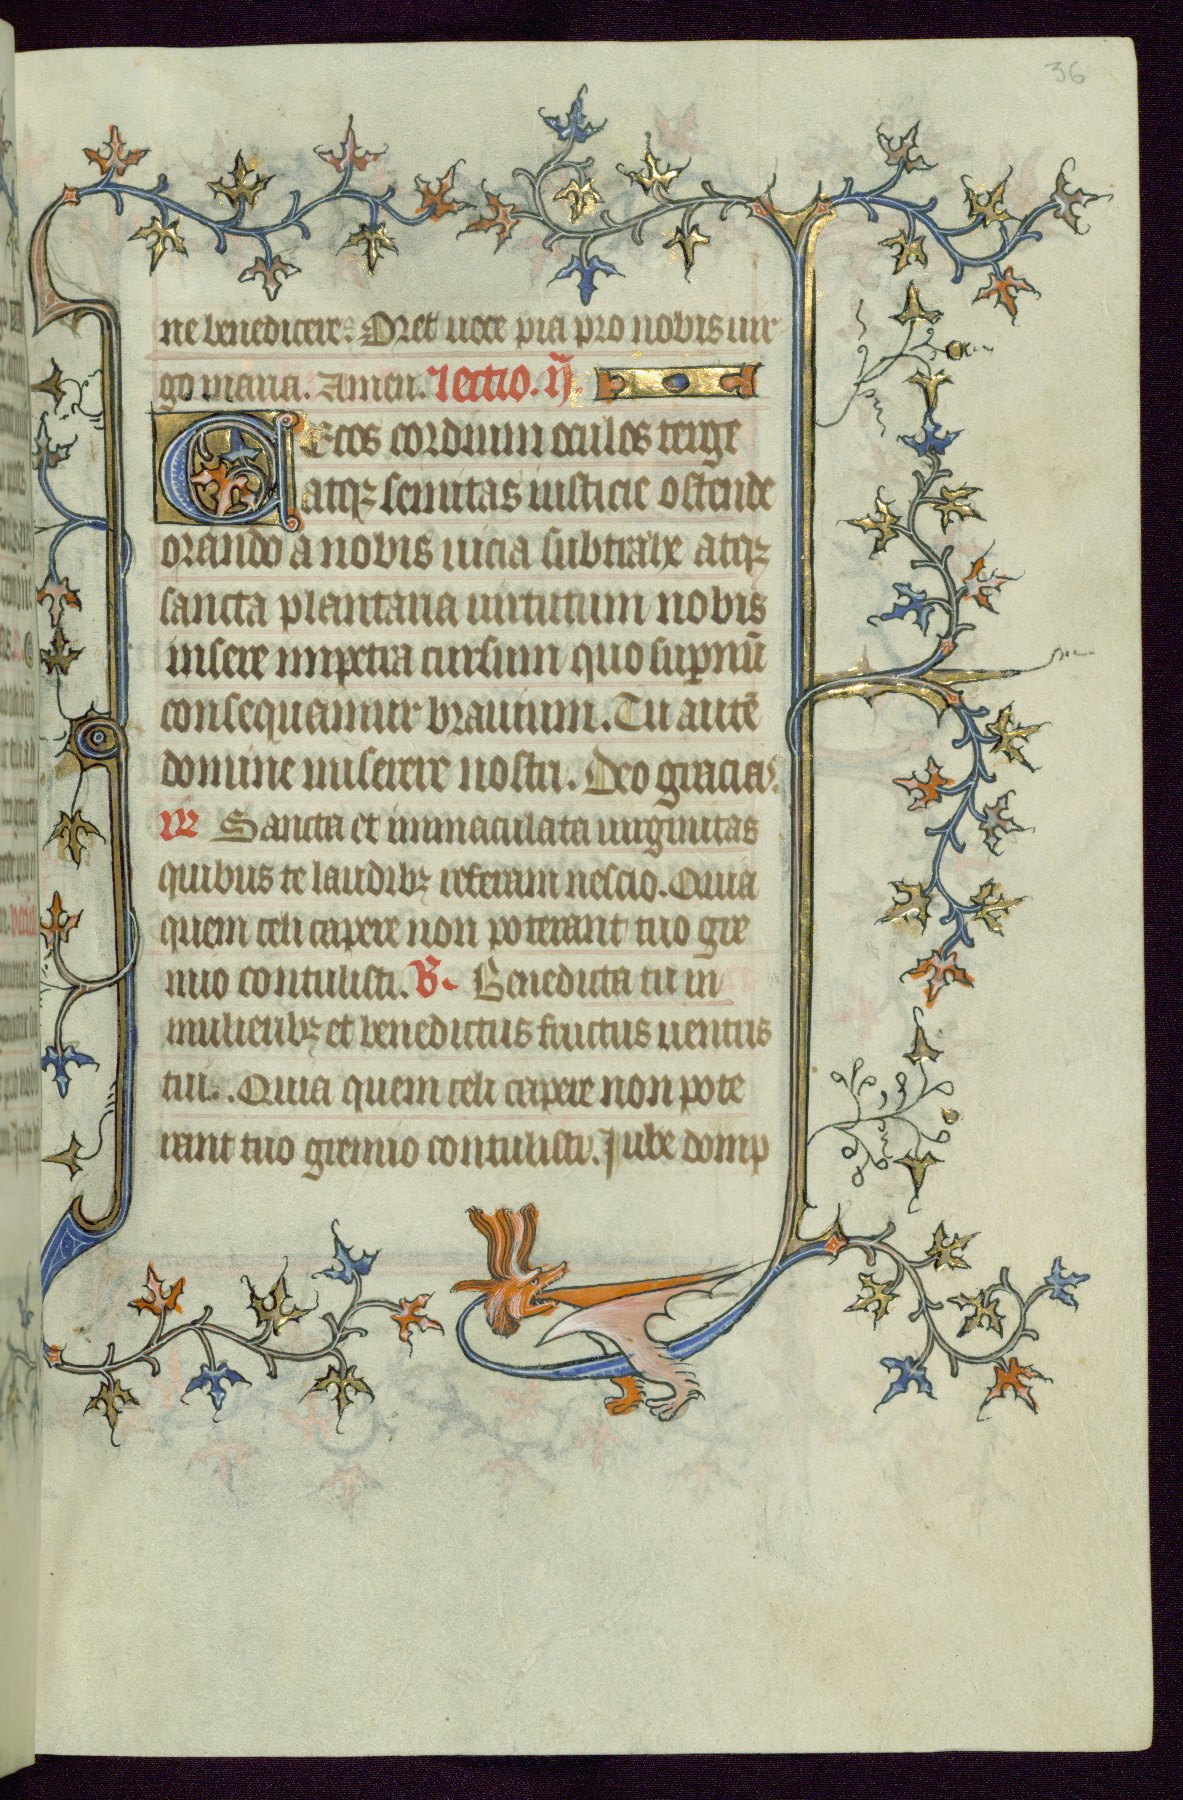 36
ne benedicere. Oret uoce pia pro nobis uir
go maria. Amen. Lectio. ij.
Cecos cordium oculos terge
atqz seruitas iusticie ostende
orando a nobis uicia subtrahe atqz
sancta plantaria uirtutum nobis
insere impetra cursum quo supnũ
consequamur brauium. Tu autẽ
domine miserere nostri. Deo gracias.
R Sancta et immaculata uirginitas
quibus te laudibz referam nescio. Quia
quem celi capere non poterant tuo gre
mio contulisti. V. Benedicta tu in
mulieribz et benedictus fructus uentris
tui. Quia quem celi capere non pote
rant tuo gremio contulisti. Iube domp